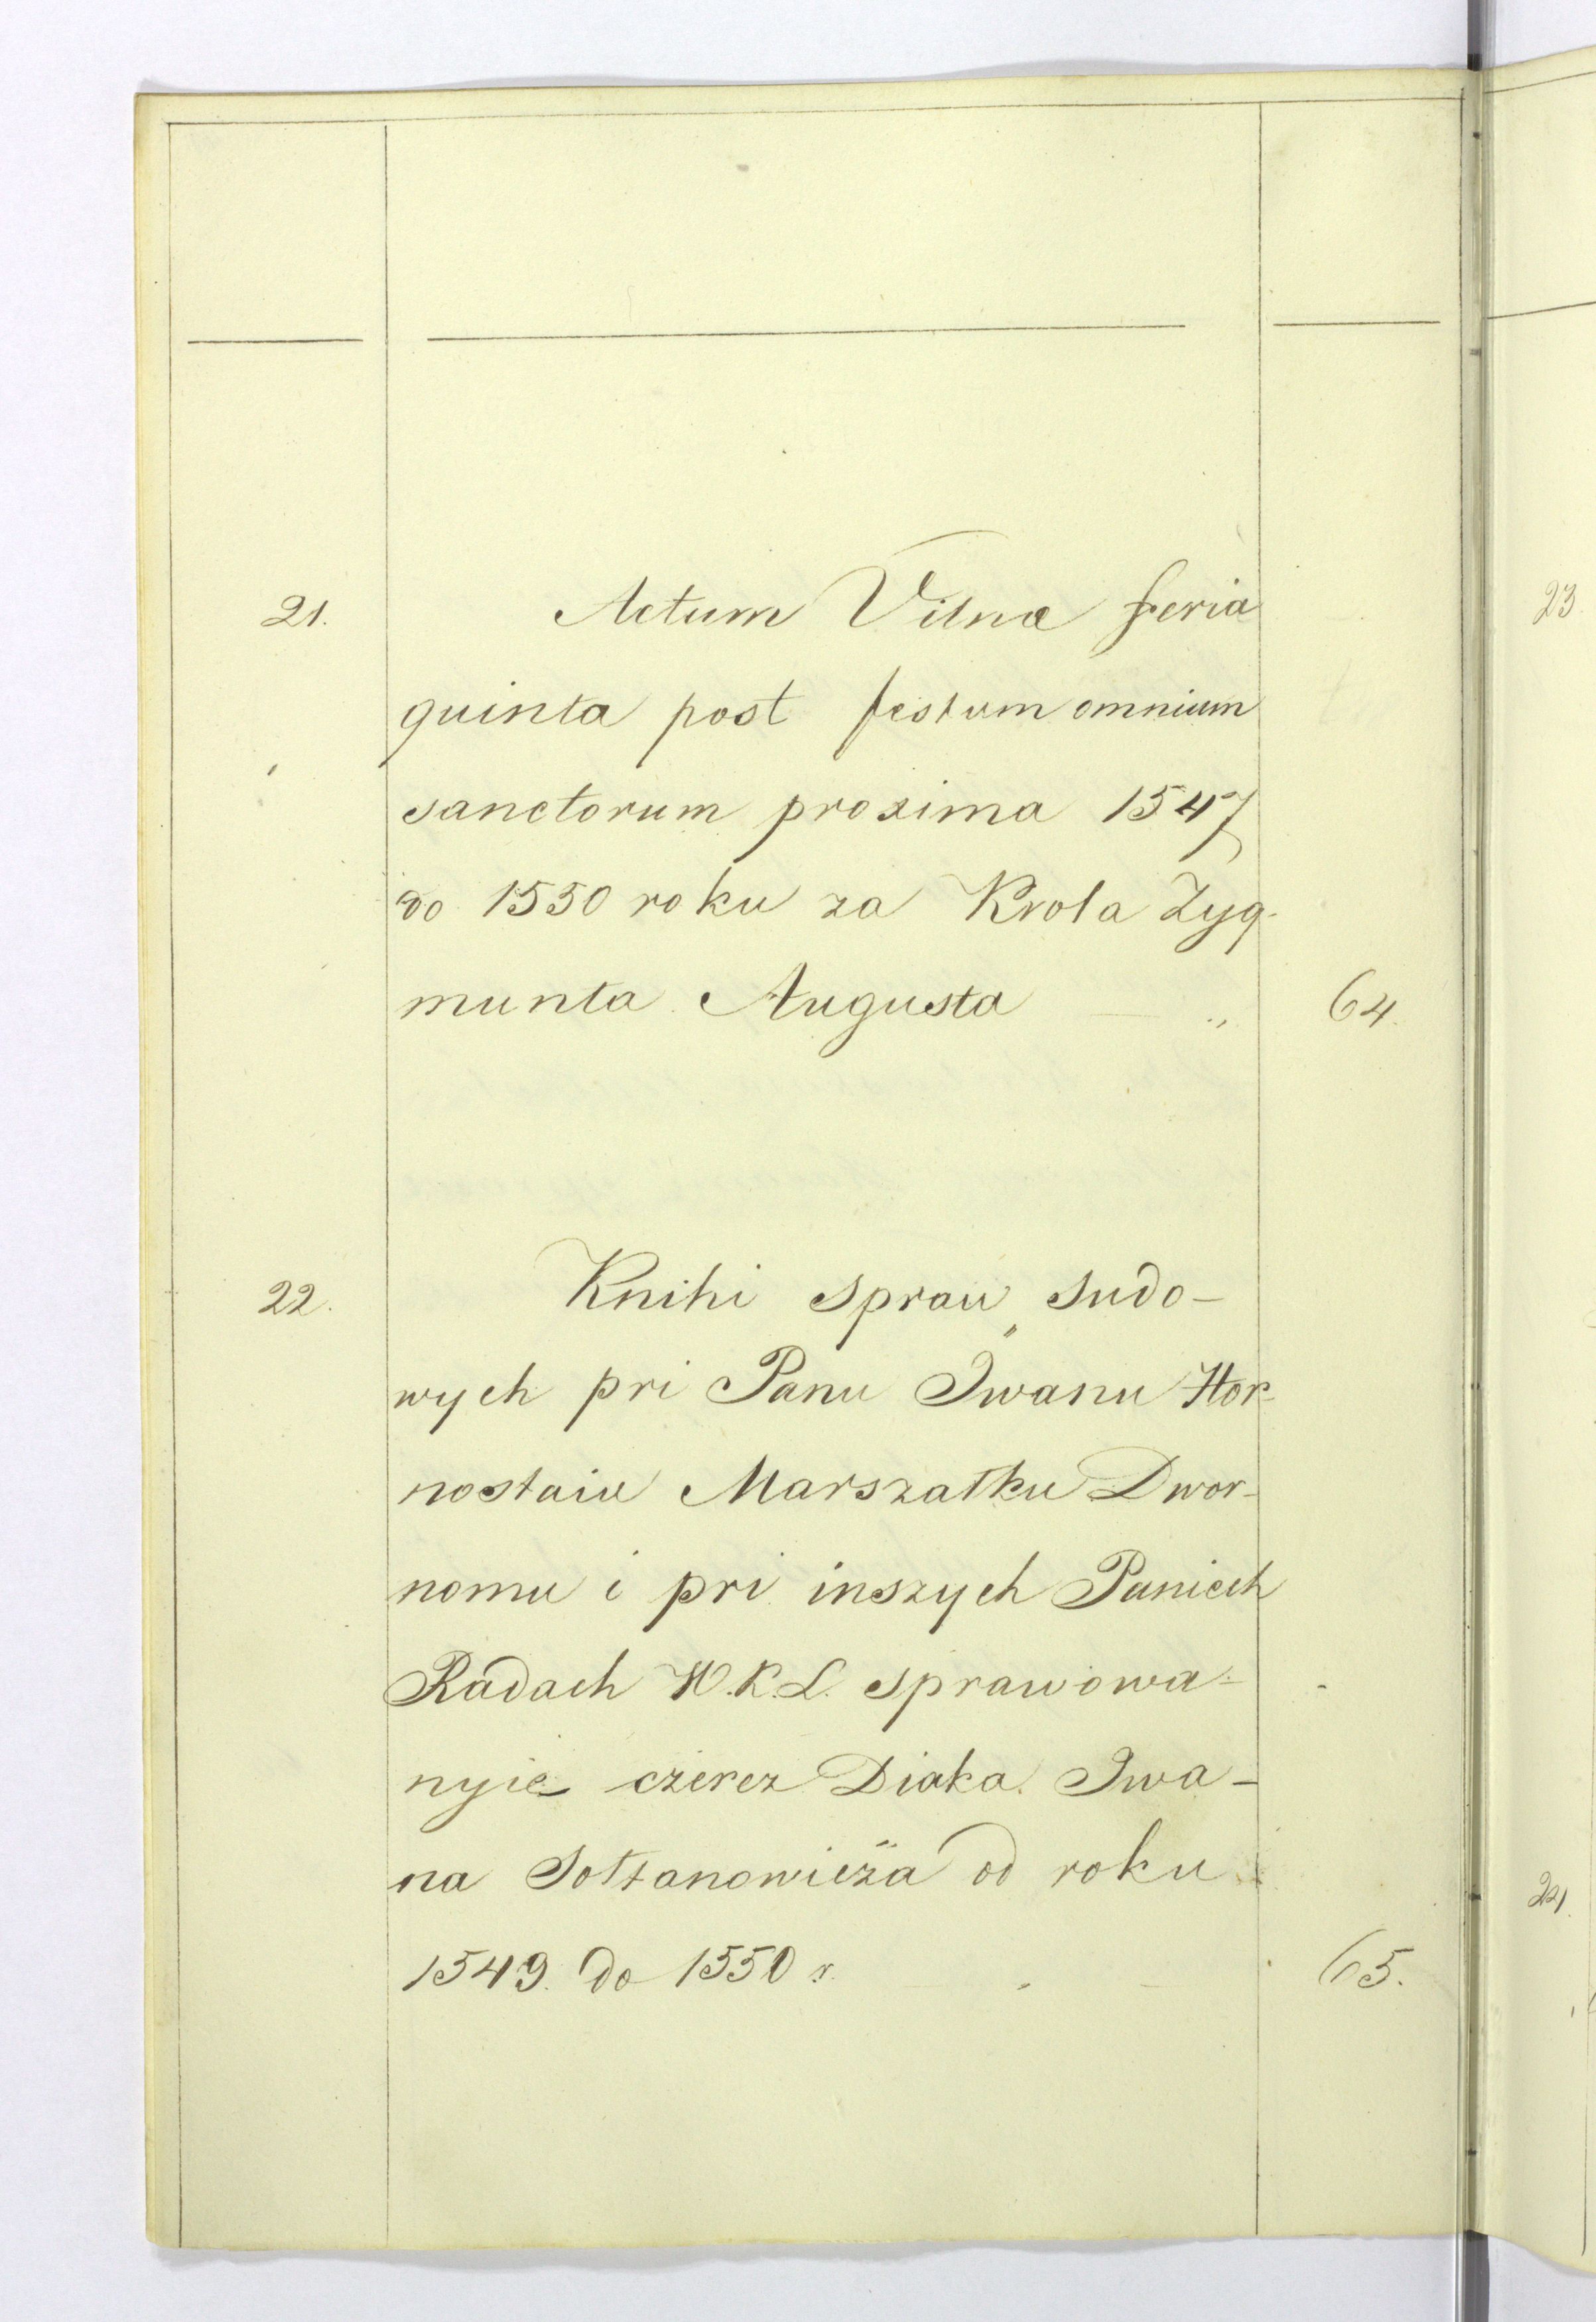 21. Actum Vilnæ feria
quinta post festum omnium
sanctorum proxima 1547
do 1550 roku za Krola Zyg-
munta Augusta — „ 64.
22. Knihi spraw sudo-
wych pri Panu Iwanu Hor-
nostaiu Marszałku Dwor-
nomu i pri inszych Paniech
Radach W.K.L. sprawowa-
nyie czerez Diaka Iwa-
na Sołtanowicza od roku
1549. do 1550 r. 65.
23.
24.